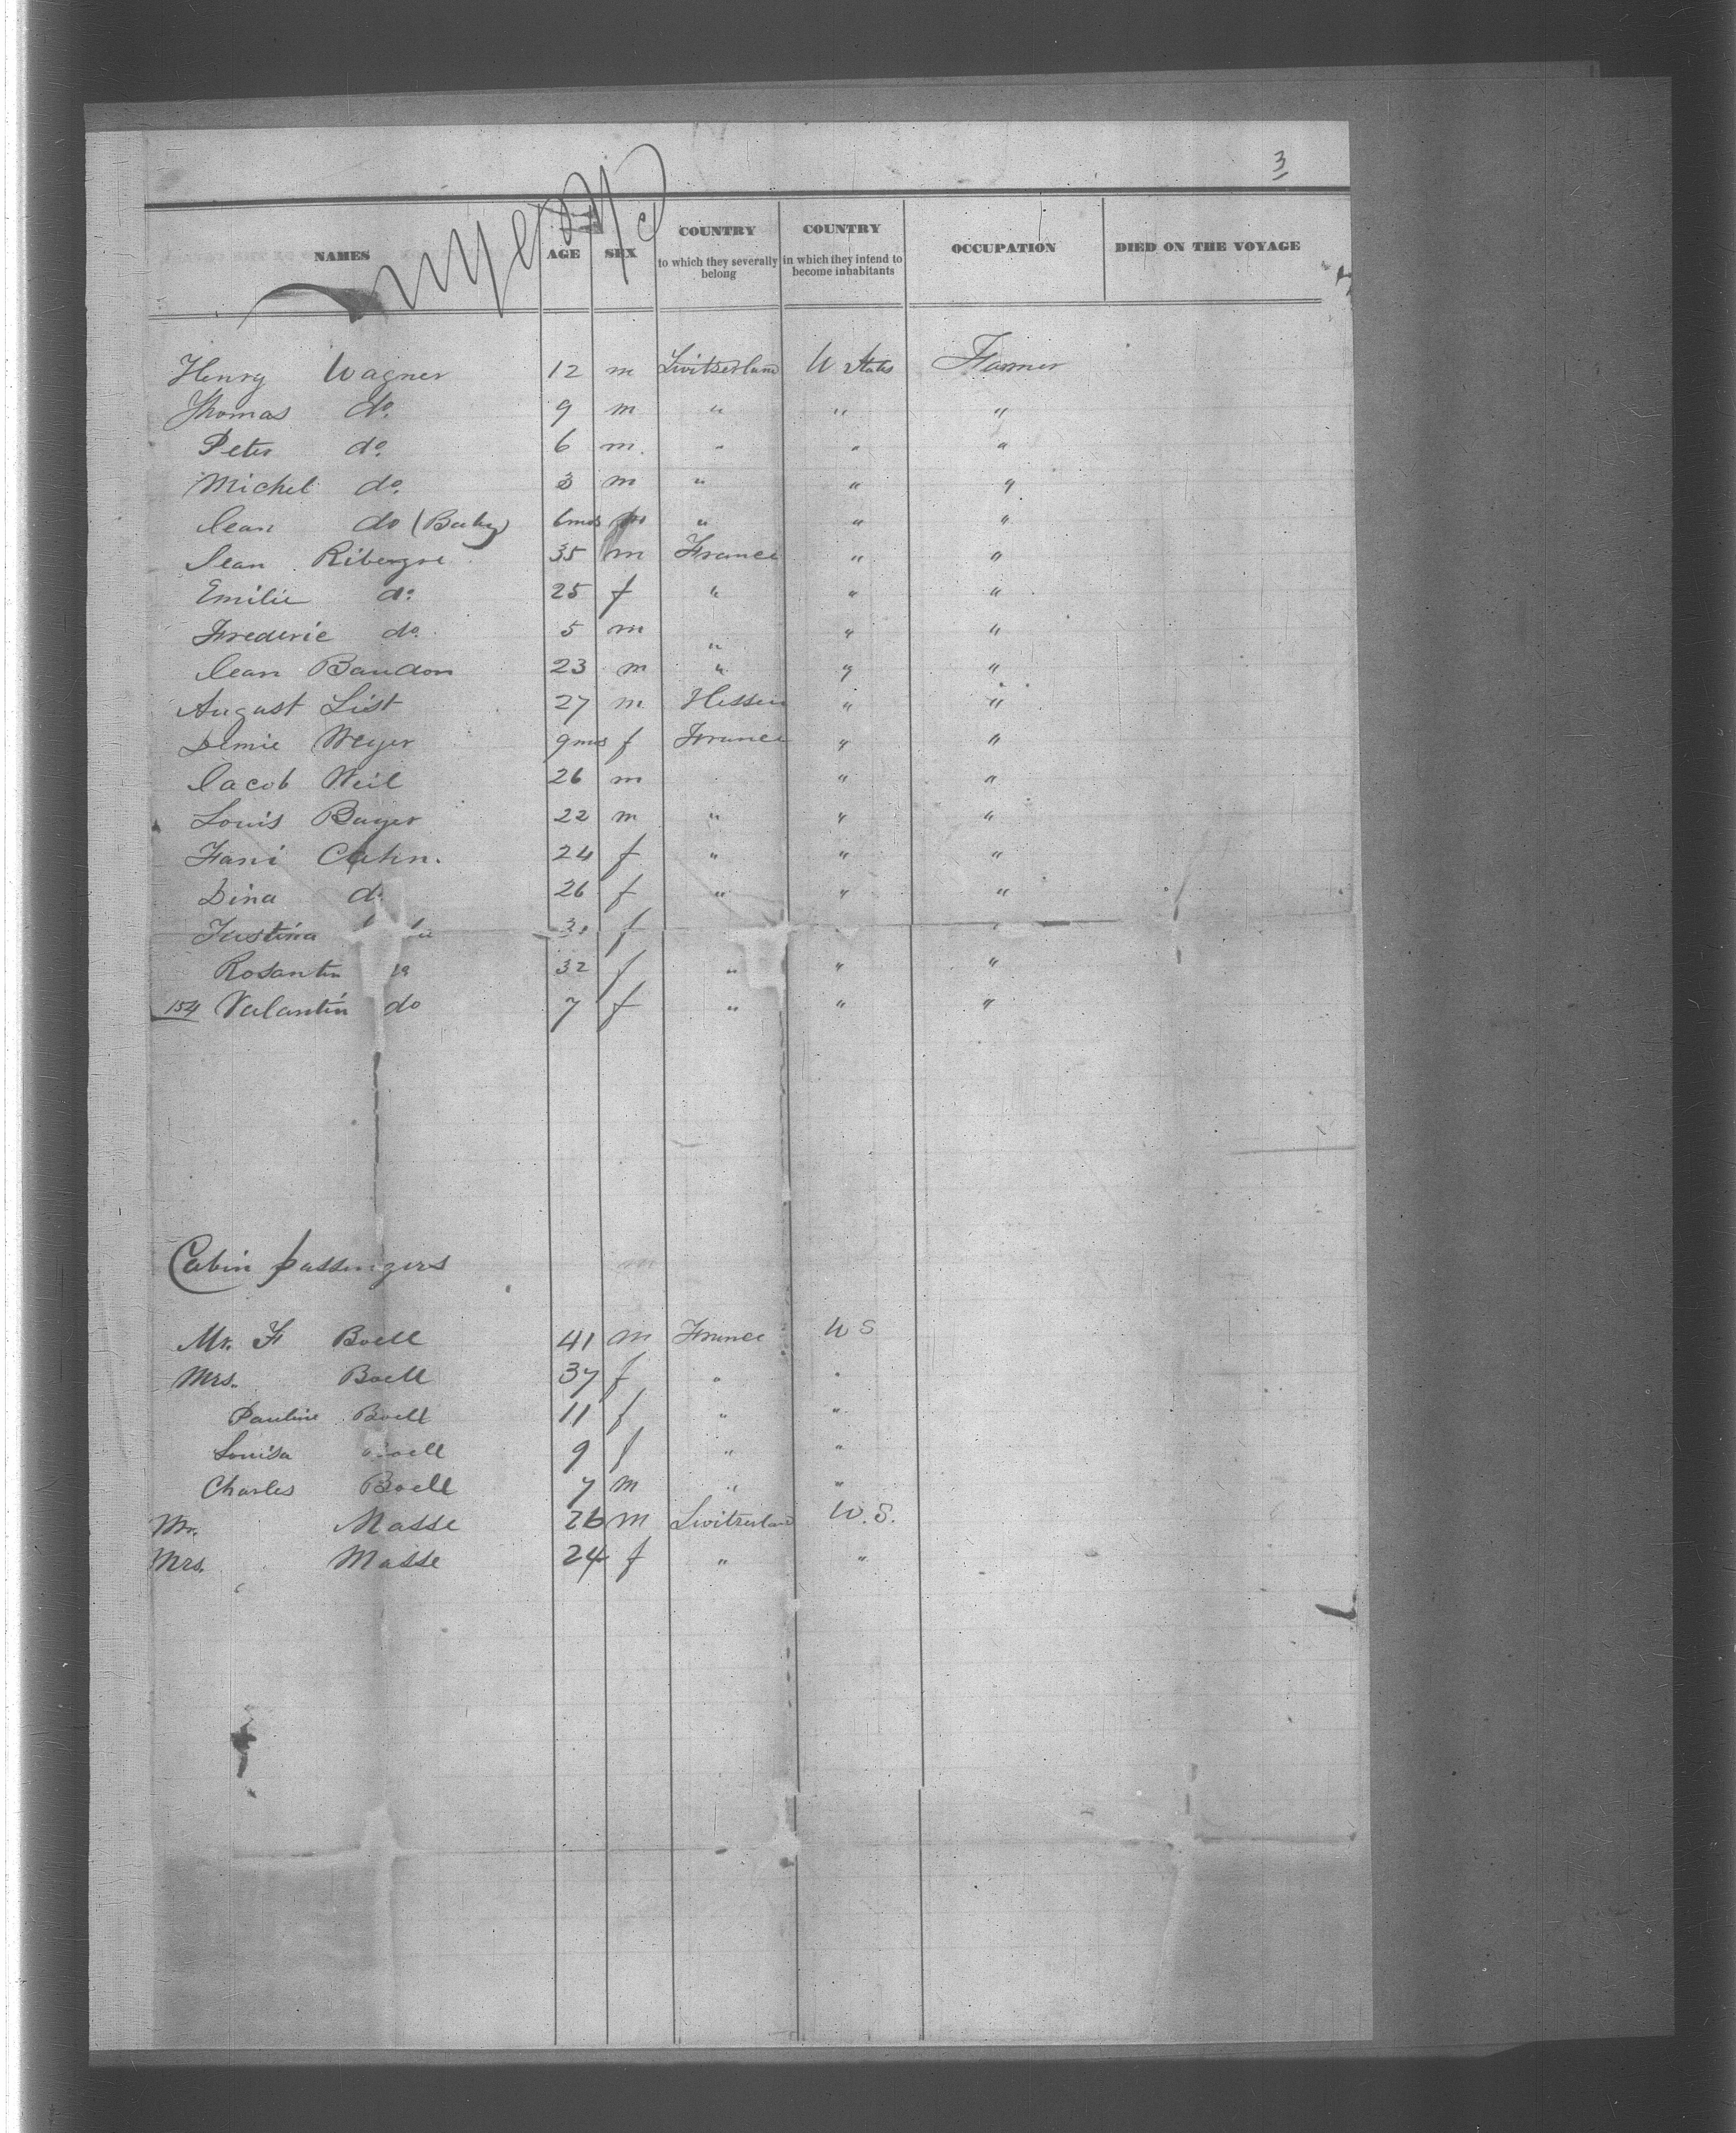 3
NAMES AGE SEX COUNTRY to which they severally belong COUNTRY in which they intend to become inhabitants OCCUPATION DIED ON THE VOYAGE
Henry Wagner 12 m Switzerland U States Farmer
Thomas do. 9 m " " "
Peter do. 6 m. " " "
Michel do. 3 m " " "
Jean do (Baby) 6mos m " " "
Jean Ribergre 35 m France " "
Emilie do. 25 f " " "
Frederic do. 5 m " " "
Jean Baudon 23 m " " "
August List 27 m Hessen " "
Meyer 9mos f France " "
Jacob Weil 26 m " "
Louis Bayer 22 m " " "
Fani Cahn. 24 f " " "
Dina do. 26 f " " "
Justina f
Rosantin 32 f " " "
154 Valantin do 7 f " " "
Cabin passengers
Mr. F Boell 41 m France U S
Mrs. Boell 37 f " "
Pauline Boell 11 f " "
Louisa Boell 9 f " "
Charles Boell 7 m " "
Mr. Masse 26 m Switzerland U.S.
Mrs. Masse 24 f " "